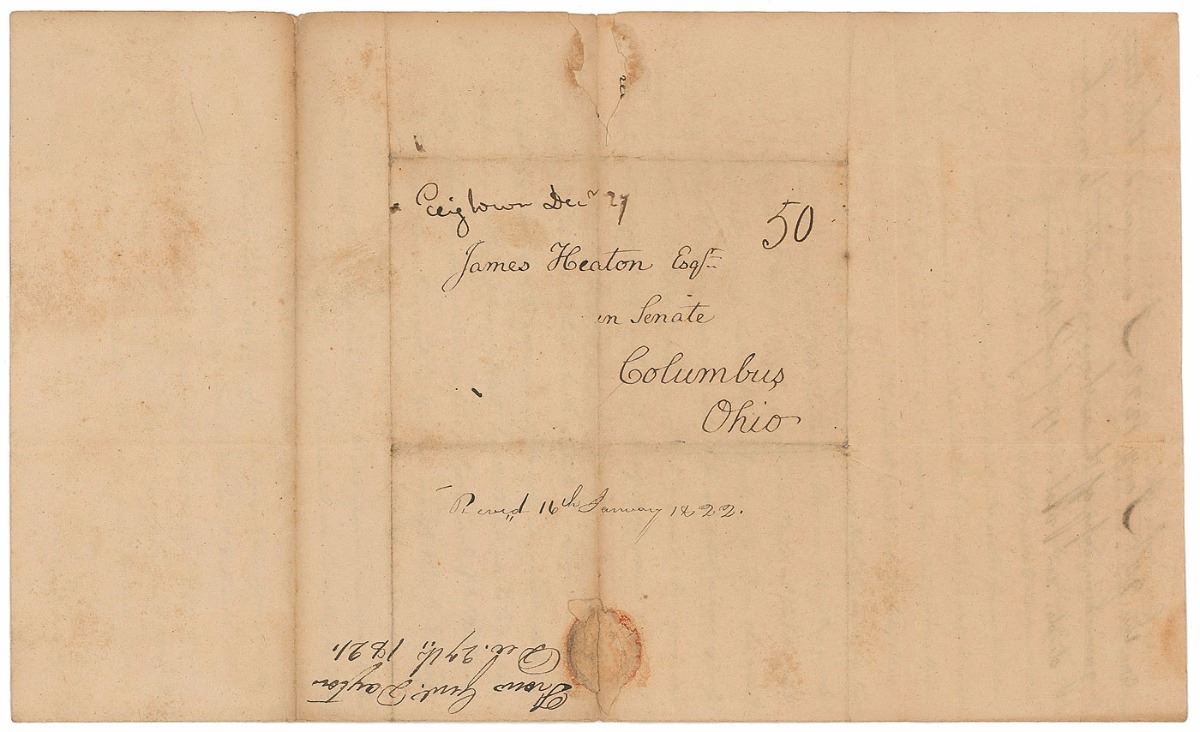 Decr 27
50
James Heaton Esqr
in Senate
Columbus
Ohio
Recvd 16th January 1822.
From Genl. Dayton
Dec. 27th, 1821.